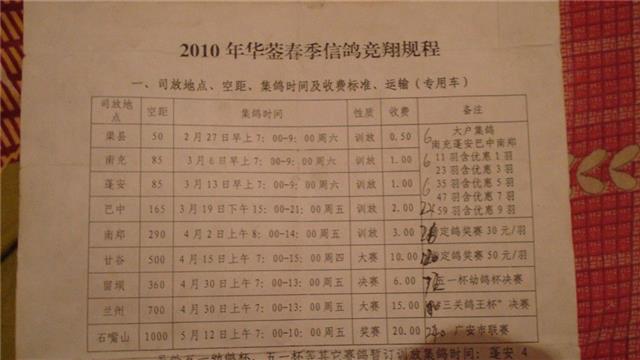 2010 年华蓥春季信鸽竞翔规程
一、司放地点、空距、集鸽时间及收费标准、运输（专用车）
司放地点 空距 集鸽时间 性质 收费 备注
渠县 50 2 月 27 日早上 7：00-9：00 周六 训放 0.50
南充 85 3 月 6 日早上 7：00-9：00 周六 训放 1.00
蓬安 85 3 月 13 日早上 7：00-9：00 周六 训放 1.00
巴中 165 3 月 19 日下午 15：00-21：00 周五 训放 2.00
大户集鸽
南充蓬安巴中南郑
11 羽含优惠 1 羽
23 羽含优惠 3 羽
35 羽含优惠 5 羽
47 羽含优惠 7 羽
59 羽含优惠 9 羽
6
6
6
南郑 290 4 月 2 日上午 8：00-14：00 周五 训放 3.00 定鸽奖赛 30 元/羽
甘谷 500 4 月 15 日上午 7：00-15：00 周四 大赛 10.00 定鸽奖赛 50 元/羽
留坝 360 4 月 30 日上午 7：00-13：00 周五 决赛 6.00 五一杯幼鸽杯决赛
兰州 700 4 月 30 日上午 7：00-13：00 周五 大赛 15.00 “三关鸽王杯”决赛
石嘴山 1000 5 月 12 日上午 7：00-10：00 周五 奖赛 20.00 广安市联赛
五一幼鸽杯、五一杯等其它赛鸽暂订训放集鸽时间：蓬安 4